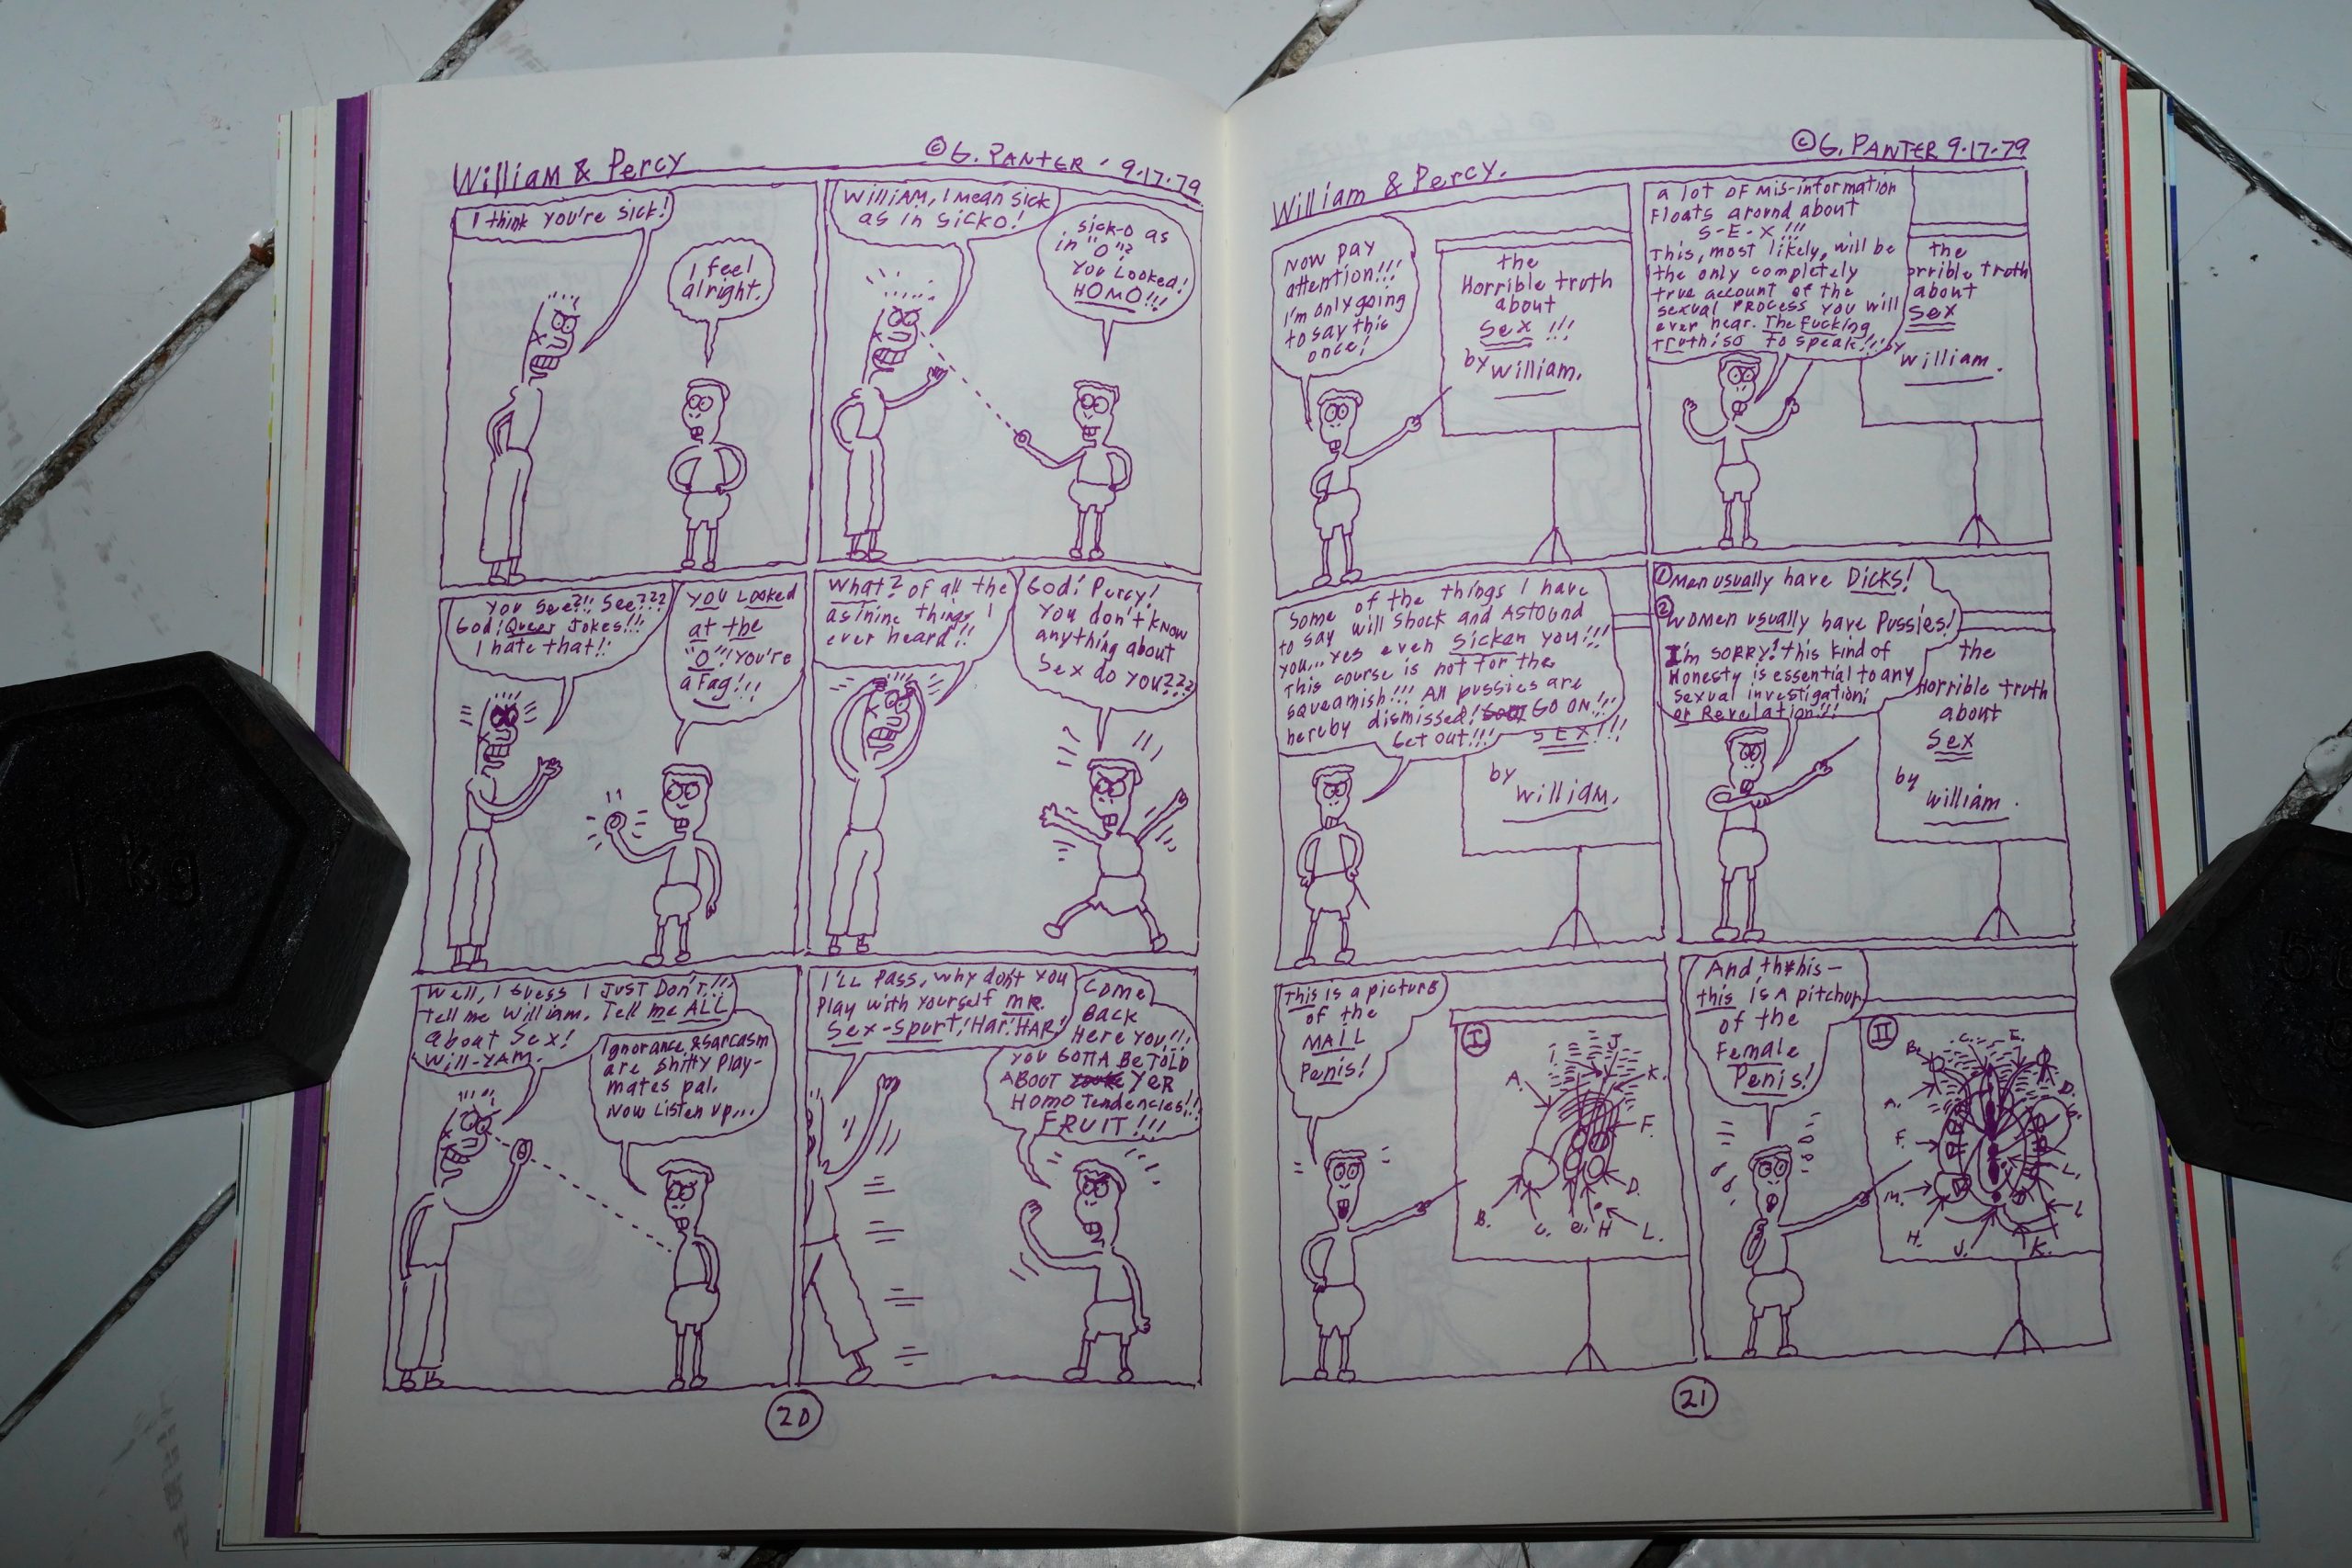 William & Percy
© G. PANTER · 9.17.79
I think you're sick!
I feel
alright.
William, I mean sick
as in sicko!
sick-o as
in "O"?
You Looked!
HOMO!!!
You see?!! See???
God! Queer Jokes!!!
I hate that!!
YOU LOOKED
at the
"O"! You're
a Fag!!!
What? of all the
asinine things I
ever heard!!
God! Percy!
You don't know
anything about
Sex do you???
Well, I guess I JUST DON'T!!!
Tell me William. Tell me ALL
about Sex!
Will-YAM.
Ignorance & sarcasm
are shitty play-
mates pal.
Now Listen up...
I'LL Pass, why don't you
Play with yourself MR.
Sex-Spurt! Har! HAR!
Come
Back
Here You!!!
YOU GOTTA BE TOLD
ABOUT YER
HOMO Tendencies!!
FRUIT!!!
20
William & Percy.
© G. PANTER 9.17.79
NOW PAY
attention!!!
I'm only going
to say this
once!
the
Horrible truth
about
Sex !!!
by William.
a lot of mis-information
Floats around about
S-E-X!!!
This, most likely, will be
the only completely
true account of the
sexual PROCESS you will
ever hear. The Fucking
truth! so to speak!!
the
orrible truth
about
Sex
by
William.
Some of the things I have
to say will shock and ASTOUND
you... yes even Sicken you!!!
This course is not for the
squeamish!!! All pussies are
hereby dismissed! GO ON!!!
Get out!!!
SEX!!!
by
William.
① Men usually have DICKS!
② Women usually have Pussies!
I'm SORRY! this kind of
Honesty is essential to any
sexual investigation;
or Revelation!!!
the
Horrible truth
about
Sex
by
William.
This is a picture
of the
MAIL
Penis!
I
I
J
A.
K.
F.
D.
B.
C.
e.
H
L.
And th this—
this is A pitchur
of the
Female
Penis!
II
B.
C.
E.
D.
A.
G.
F.
L.
M.
i
H.
J.
K.
21
1 kg